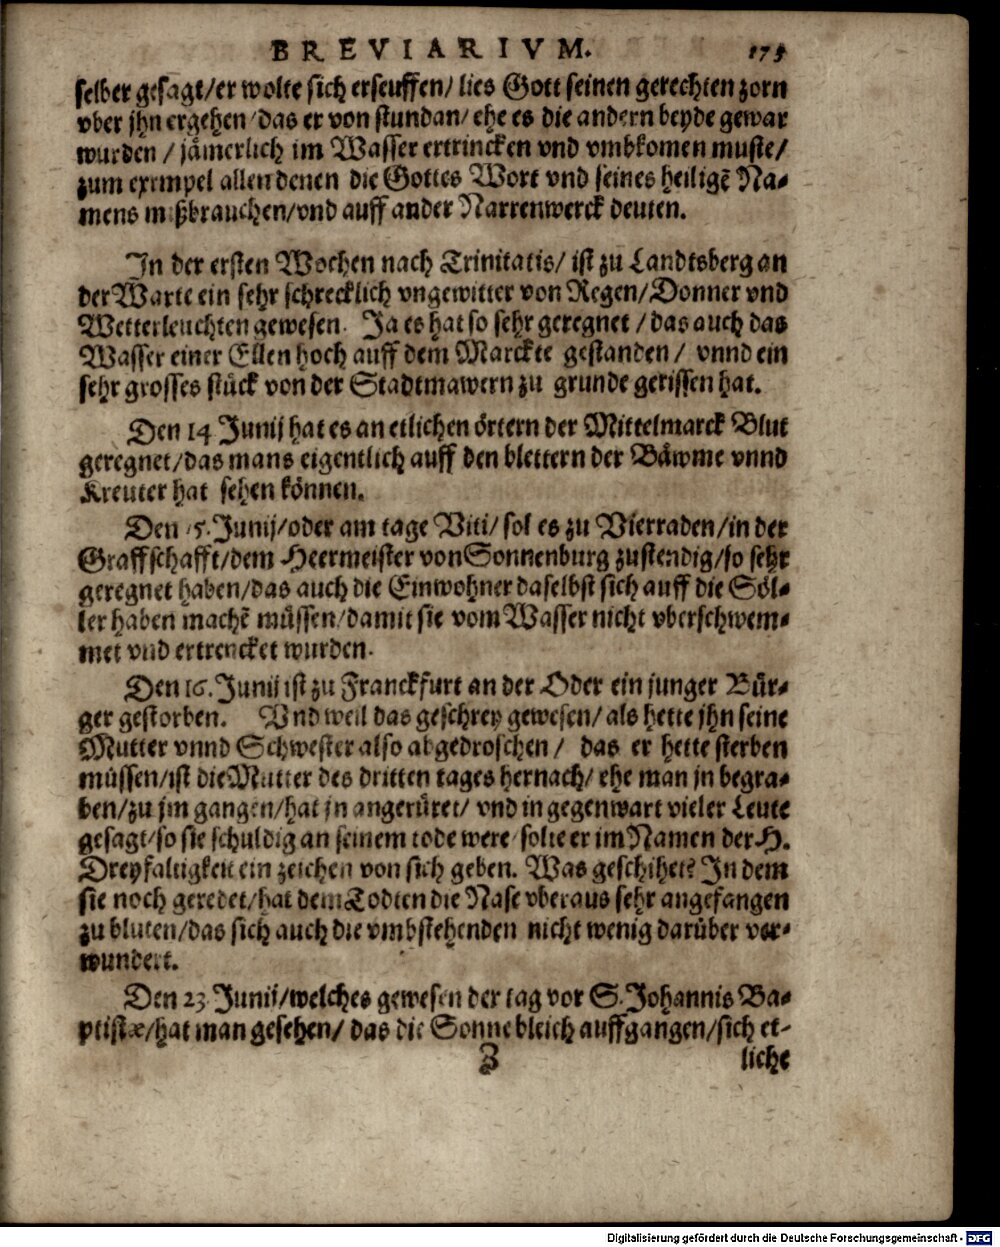 BREVIARIVM. 175
selber gesagt/er wolte sich erseuffen/ lies Gott seinen gerechten zorn
vber jhn ergehen/das er von stundan/ ehe es die andern beyde gewar
wurden / jämerlich im Wasser ertrincken vnd vmbkomen muste/
zum exempel allen denen die Gottes Wort vnd seines heiligẽ Na-
mens mißbrauchen/vnd auff ander Narrenwerck deuten.
In der ersten Wochen nach Trinitatis/ ist zu Landtsberg an
der Warte ein sehr schrecklich vngewitter von Regen/Donner vnd
Wetterleuchten gewesen. Ja es hat so sehr geregnet / das auch das
Wasser einer Ellen hoch auff dem Marckte gestanden / vnnd ein
sehr grosses stück von der Stadtmawern zu grunde gerissen hat.
Den 14 Junij hat es an etlichen örtern der Mittelmarck Blut
geregnet/das mans eigentlich auff den blettern der Bäwme vnnd
Kreuter hat sehen können.
Den 15. Junij/oder am tage Viti/ sol es zu Vierraden/in der
Graffschafft/dem Heermeister von Sonnenburg zustendig/so sehr
geregnet haben/das auch die Einwohner daselbst sich auff die Söl-
ler haben machẽ müssen/damit sie vom Wasser nicht vberschwem-
met vnd ertrencket wurden.
Den 16. Junij ist zu Franckfurt an der Oder ein junger Bür-
ger gestorben. Vnd weil das geschrey gewesen/ als hette jhn seine
Mutter vnnd Schwester also abgedroschen / das er hette sterben
müssen/ist die Mutter des dritten tages hernach/ ehe man jn begra-
ben/zu jm gangen/hat jn angerüret/ vnd in gegenwart vieler Leute
gesagt/so sie schuldig an seinem tode were/solte er im Namen der H.
Dreyfaltigkeit ein zeichen von sich geben. Was geschihet? In dem
sie noch geredet/hat dem Todten die Nase vberaus sehr angefangen
zu bluten/das sich auch die vmbstehenden nicht wenig darüber ver-
wundert.
Den 23 Junij/welches gewesen der tag vor S. Johannis Ba-
ptistæ/hat man gesehen/ das die Sonne bleich auffgangen/sich et-
Z liche
Digitalisierung gefördert durch die Deutsche Forschungsgemeinschaft - DFG